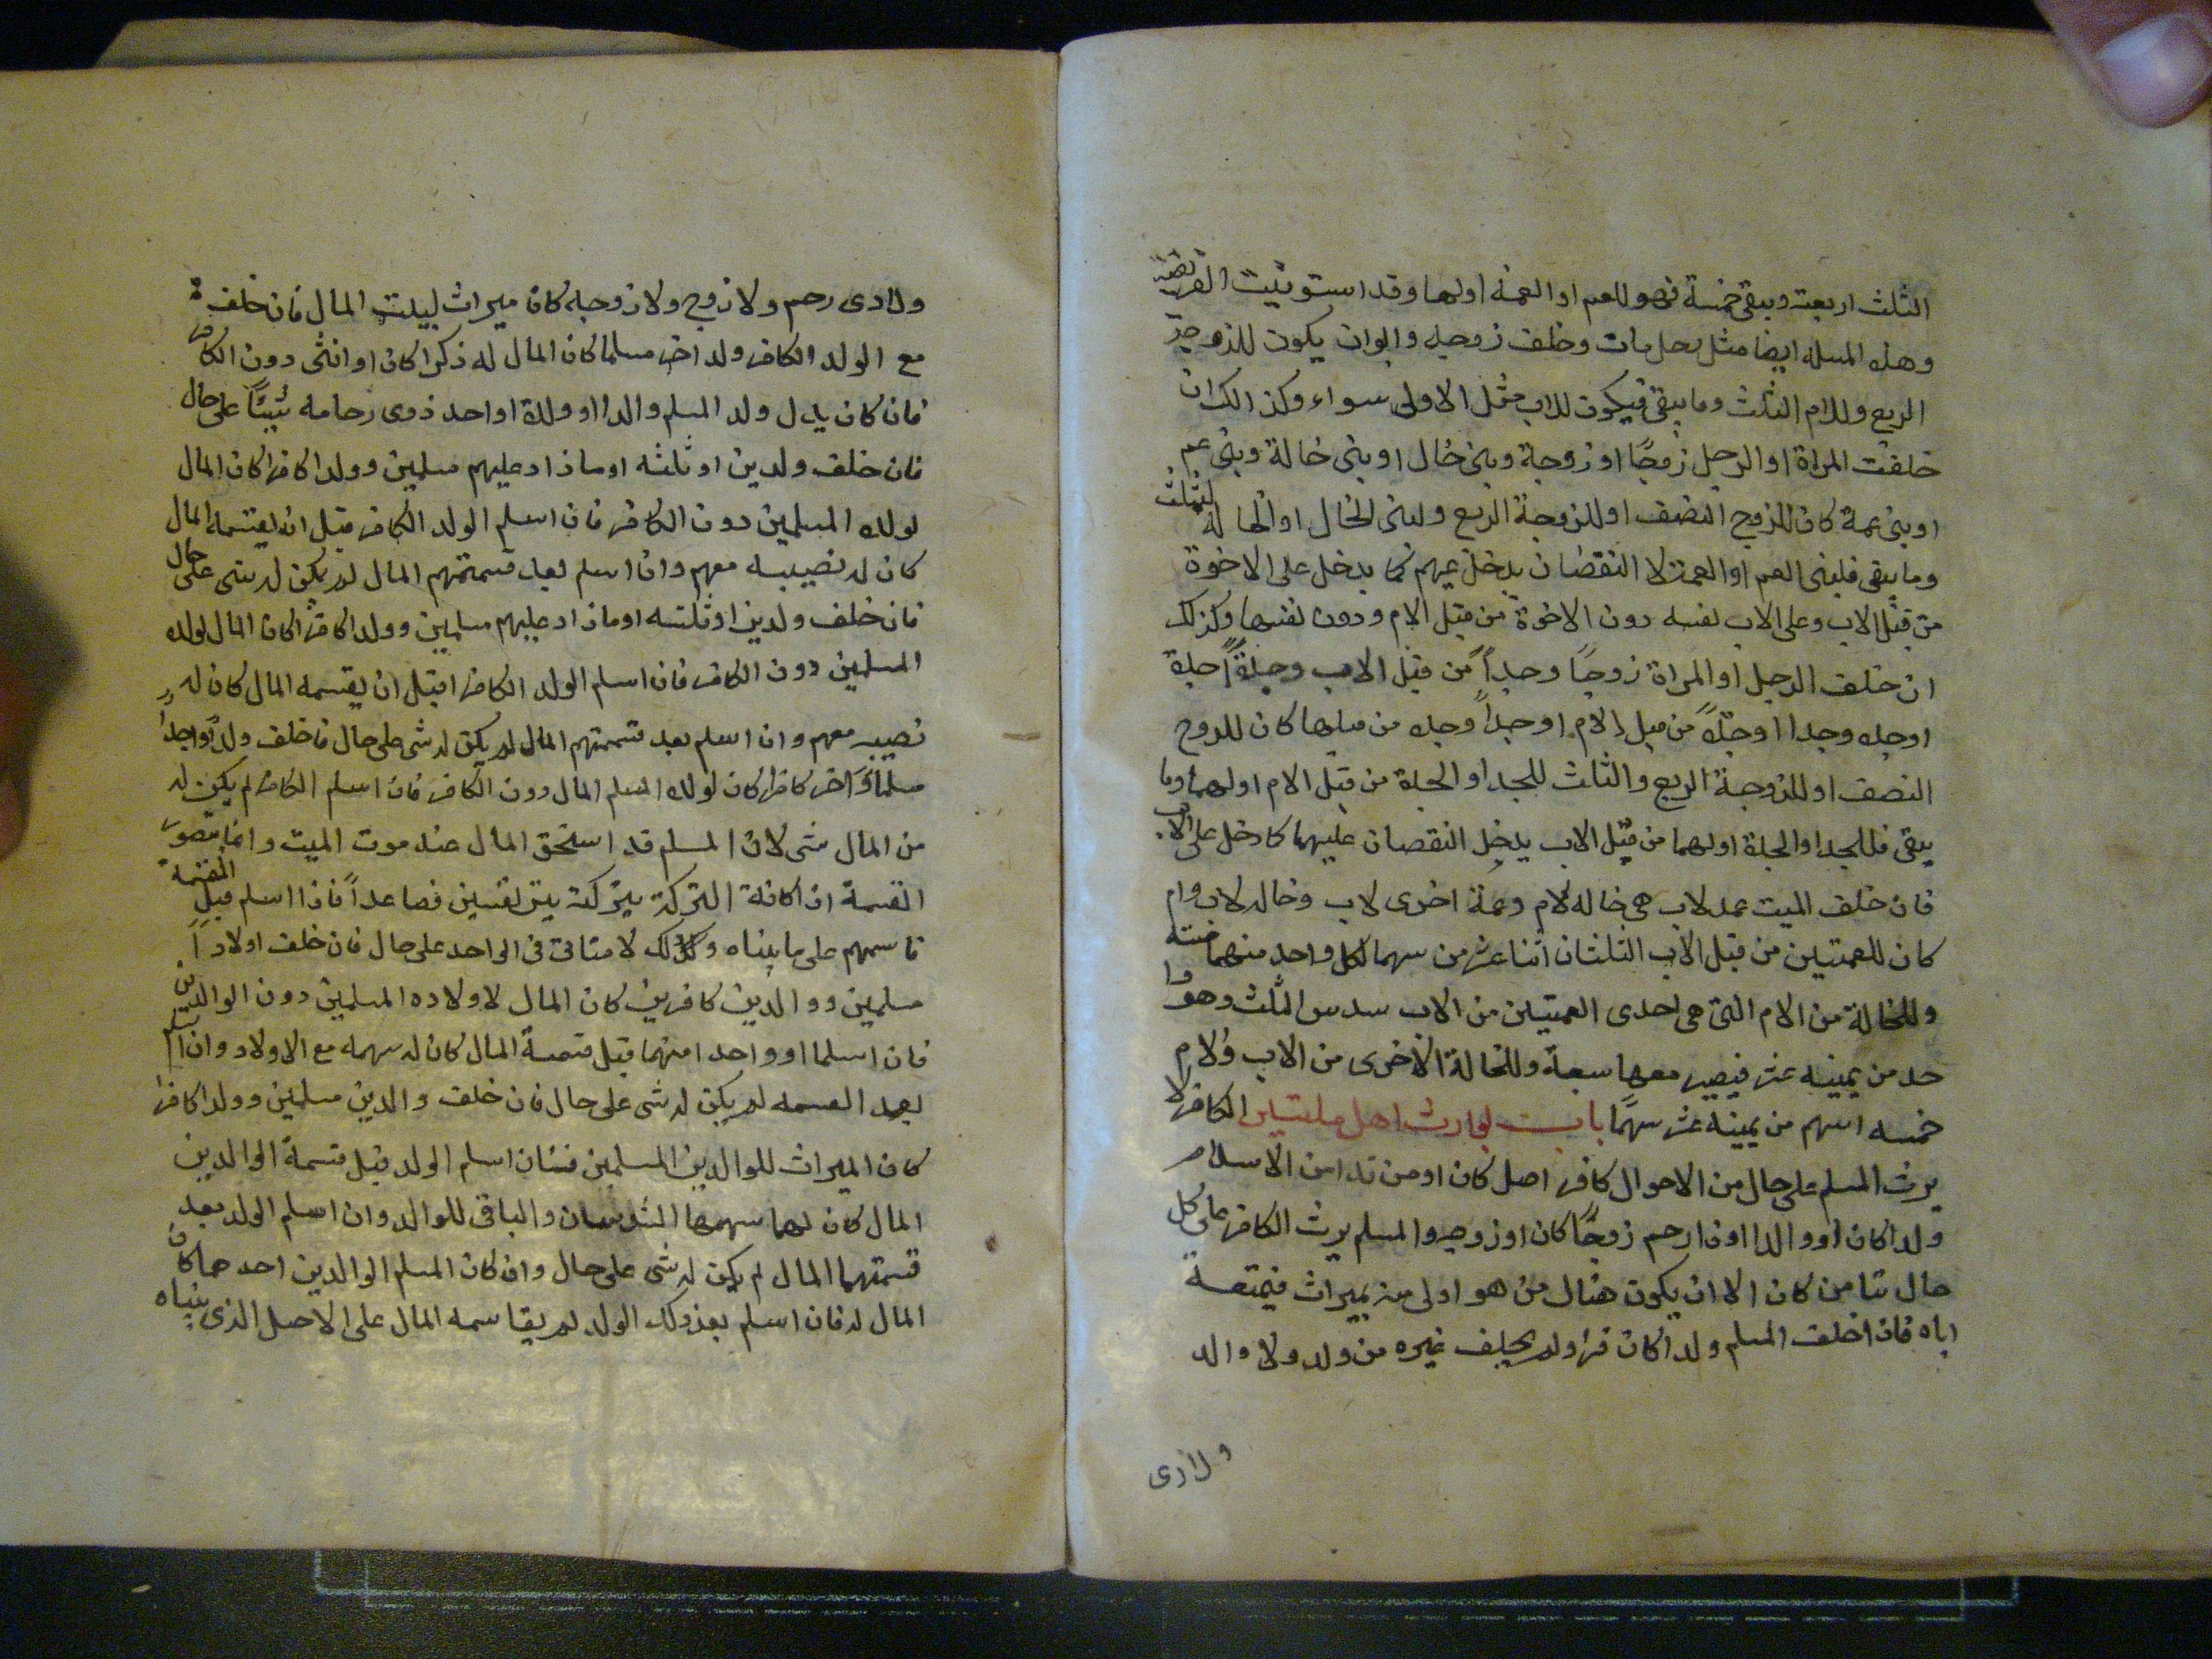 الثلث اربعت ويبقى خمسة فهو للعم او العمة او لهما وقد استوفيت الفريضة
وهذه المسله ايضا مثل رجل مات وخلف زوجه وابوان يكون للزوجة
الربع وللام الثلث وما يبقى فيكون للاب مثل الاولى سواء وكذالك ان
خلفت المراة او الرجل زوجًا او زوجة وبنى خال او بنى خالة وبنى عم
او بنى عمة كان للزوج النصف او للزوجة الربع ولبنى الخال او الخالة الثلث
وما يبقى فلبنى العم او العمة لا النقصان يدخل عليهم كما يدخل على الاخوة
من قبل الاب وعلى الاب نفسه دون الاخوة من قبل الام ودون نفسها وكذلك
ان خلف الرجل او المراة زوجًا وجداً من قبل الاب وجدةً
او جده وجدا او جدةً من قبل الام او جداً وجده من قبلها كان للزوج
النصف او للزوجة الربع والثلث للجد او الجدة من قبل الام او لهما وما
يبقى فللجد او الجدة او لهما من قبل الاب يدخل النقصان عليهما كما دخل على الاب
فان خلف الميت عمه لاب هى خاله لام وعمة اخرى لاب وخاله لاب وام
كان للعمتين من قبل الاب الثلثان اثنا عشر من سهما لكل واحد منهما ستة
وللخالة من الام التى هى احدى العمتين من الاب سدس الثلث وهو وا
حد من ثمينه عشر فيصير معها سبعة وللخالة الاخرى من الاب والام
خمسه اسهم من ثمينه عشر سهمًا باب توارث اهل ملتين الكافر لا
يرث المسلم على حال من الاحوال كافر اصل كان او من تدا من الاسلام
ولدا كان او والدا او ذا رحم زوجًا كان او زوجه والمسلم يرث الكافر على كل
حال تنا من كان الا ان يكون هنال من هو اولى منه بميراث فيمنعه
اياه فان اخلف المسلم ولدا كان فرا ولم يخلف غيره من ولد ولا والد
ولا ذى
ولا ذى رحم ولا زوج ولا زوجه كان ميراث لبيت المال فان خلف
مع الولد الكافر ولد اخر مسلما كان المال له ذكرا كان او انثى دون الكافر
فان كان بدل ولد المسلم والدا او ولدة او احد ذوى رحامه على حال
فان خلف ولدين او ثلثه او ما زاد عليهم مسلمين وولدا كافرا كان المال
لولده المسلمين دون الكافر فان اسلم الولد الكافر قبل ان يقتسمه المال
كان له نصيبه معهم وان اسلم بعد قسمتهم المال لم يكن له شى على حال
فان خلف ولدين او ثلثه او ما زاد عليهم مسلمين وولدا كافرا كان المال لولده
المسلمين دون الكافر فان اسلم الولد الكافر ا قبل ان يقسمه المال كان له
نصيبه معهم وان اسلم بعد قسمتهم المال لم يكن له شى على حال فا خلف ولدًا واحدا
مسلماً وَاخر كافرا كان لولده المسلم المال دون الكافر فان اسلم الكافر لم يكن له
من المال شى لان المسلم قد استحق المال عند موت الميت وانما يتصور
القسمة اذا كانة التركة بين نفسين فصاعداً فاذا اسلم قبل القسمة
قاسمهم على ما بيناه وكذلك لا متاتى فى الواحد على حال فان خلف اولاداً
مسلمين ووالدين كافرين كان المال لاولاده المسلمين دون الوالدين
فان اسلما او واحد امنهما قبل قسمة المال كان له سهمه مع الاولاد وان اسلم
بعد القسمه لم يكن له شى على حال فان خلف والدين مسلمين وولدا كافرا
كان الميراث للوالدين المسلمين فان اسلم الولد قبل قسمة الوالدين
المال كان لهما سهمها السدسان والباقى للوالد وان اسلم الولد بعد
قسمتهما المال لم يكن له شى على حال وان كان المسلم الوالدين احدهما كان
المال له فان اسلم بعد ذلك الولد لم يقاسمه المال على الاصل الذى بيناه